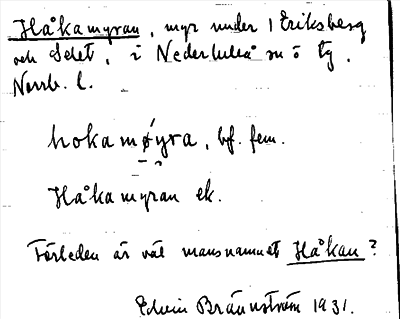 Håkamyran, myr under 1 Eriksberg
och Selet, i Nederluleå sn ö tg.
Norrb. l.
hokamǿyra, bf. fem.
Håkamyran ek.
Förleden är väl mansnamnet Håkan?
Edvin Brännström 1931.